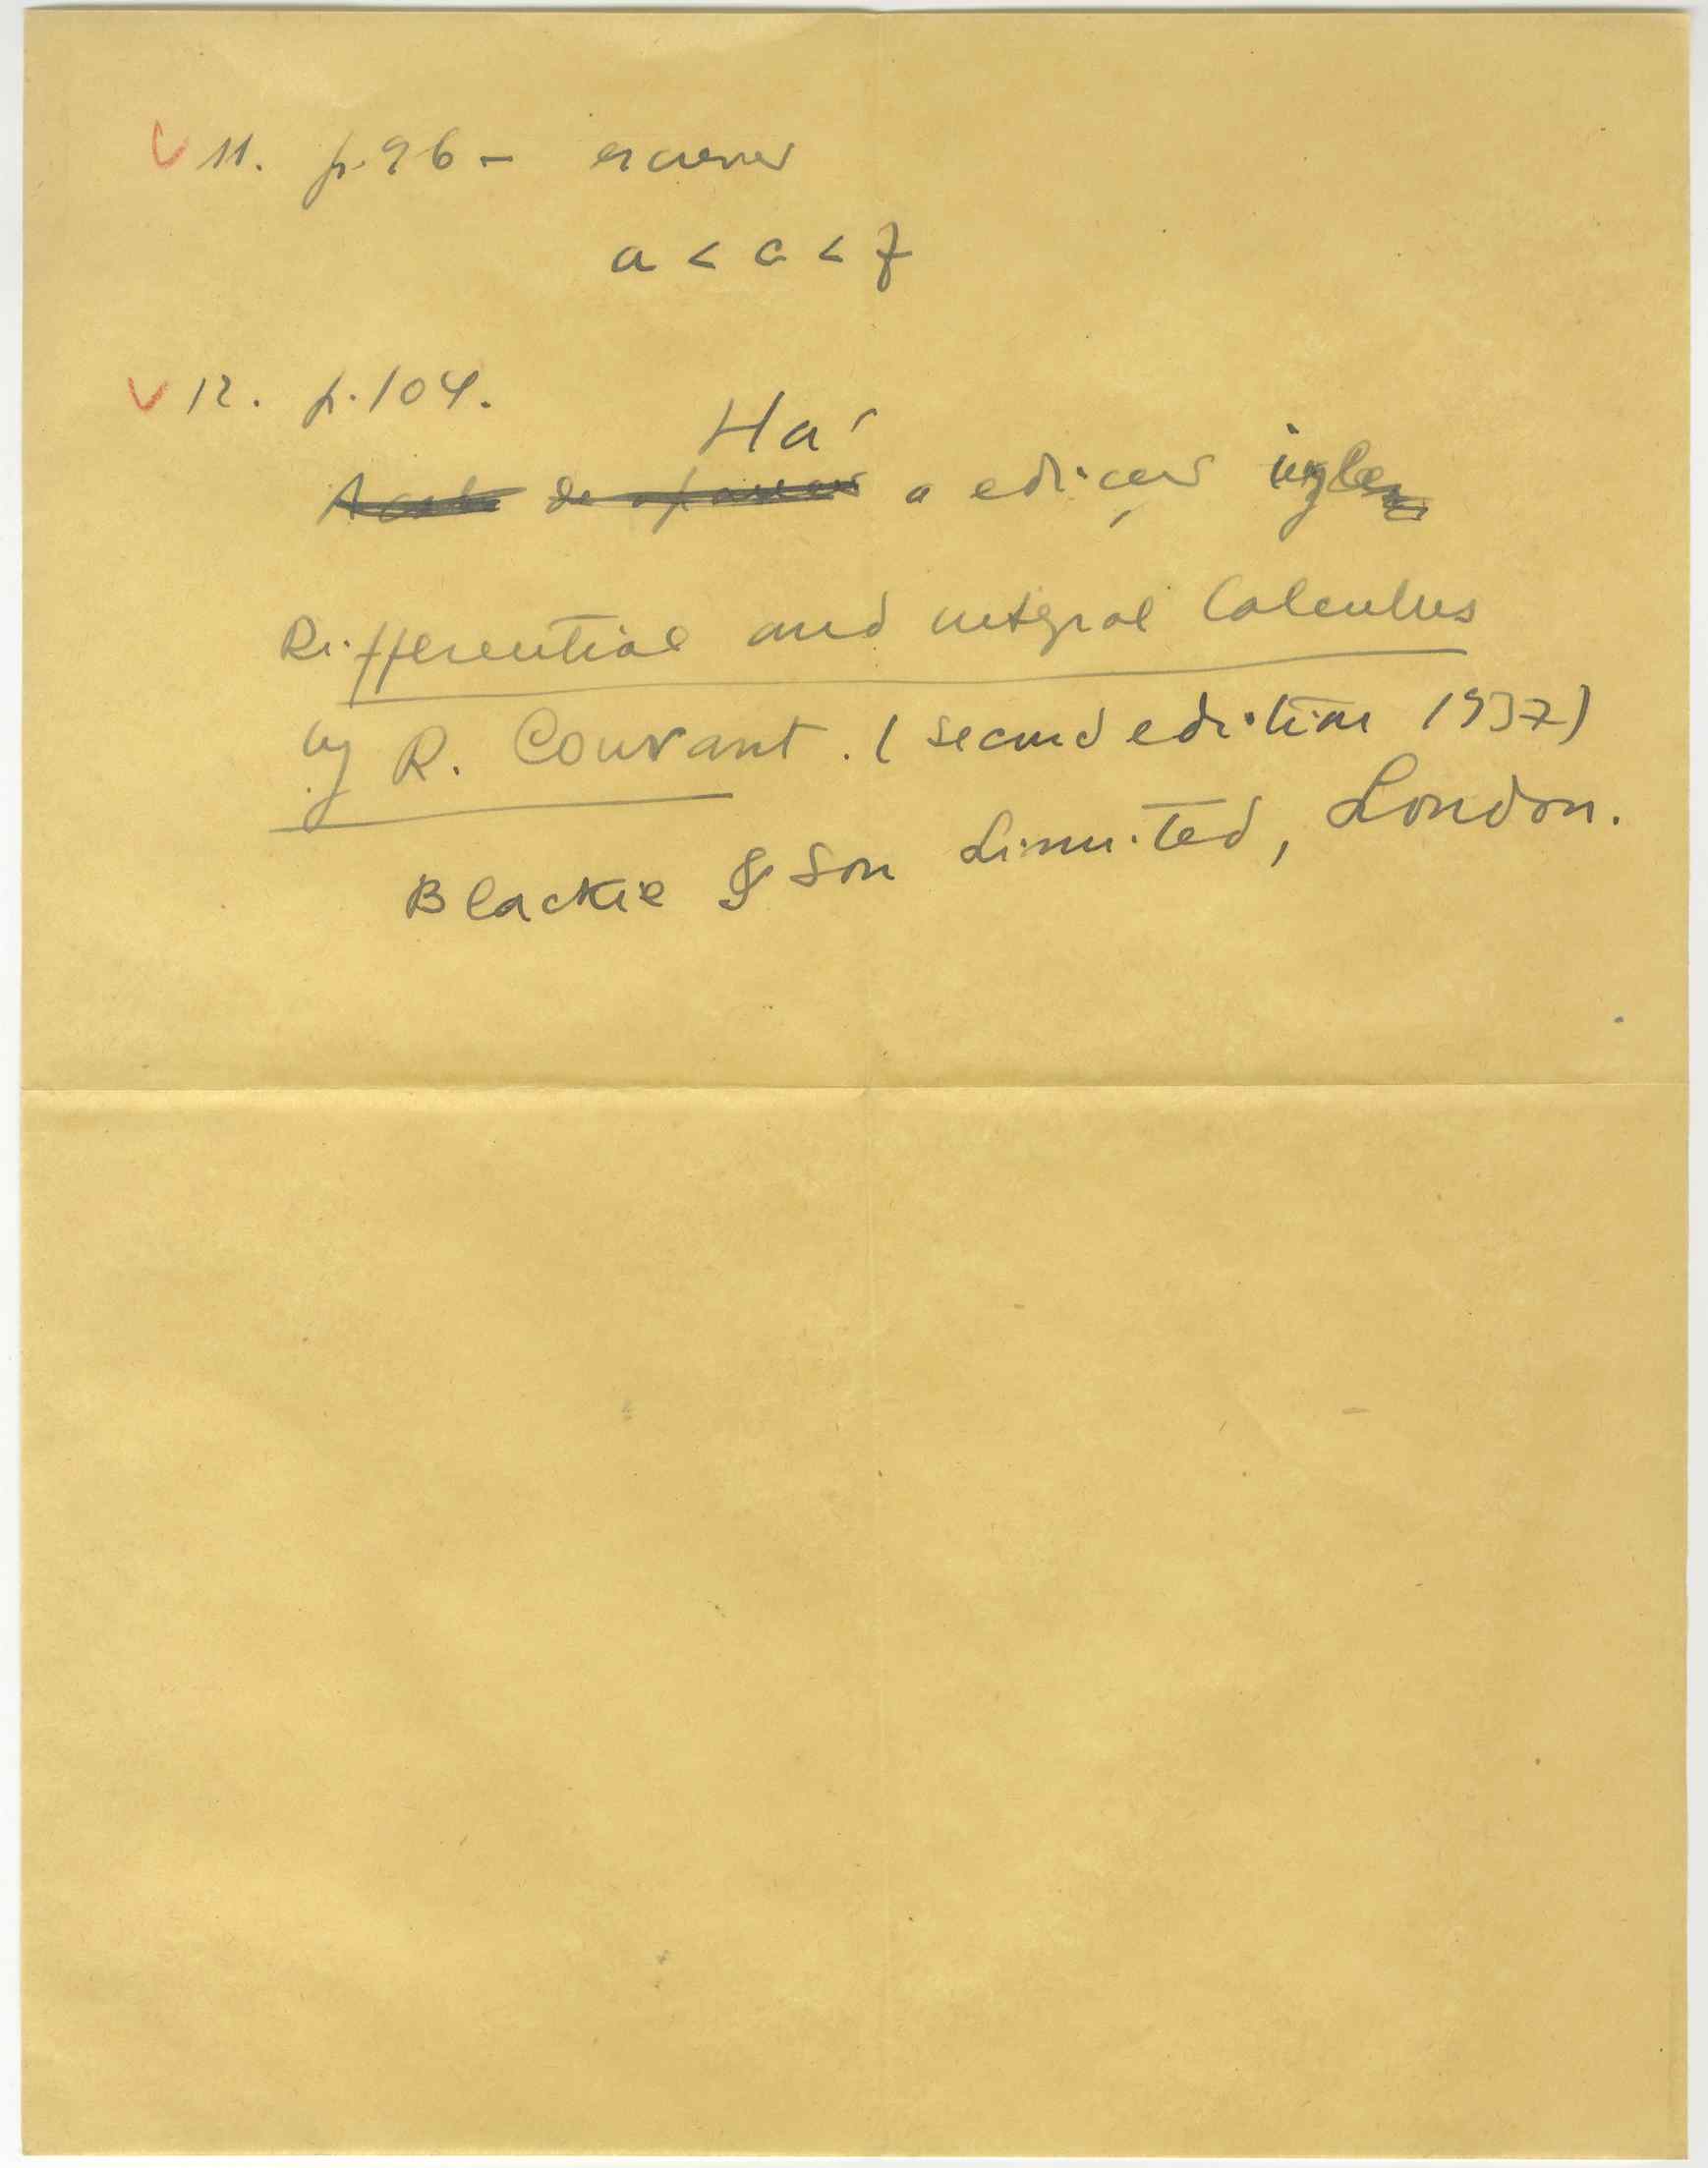 11. p. 96 - escrever
a < c < z
12. p. 104.
Há
Acaba de aparecer a edição ingleza
Differential and integral Calculus
by R. Courant. (second edition 1937)
Blackie & Son Limited, London.